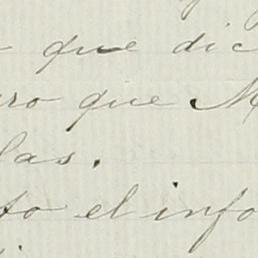 que dic
ro que M
las.
to el info